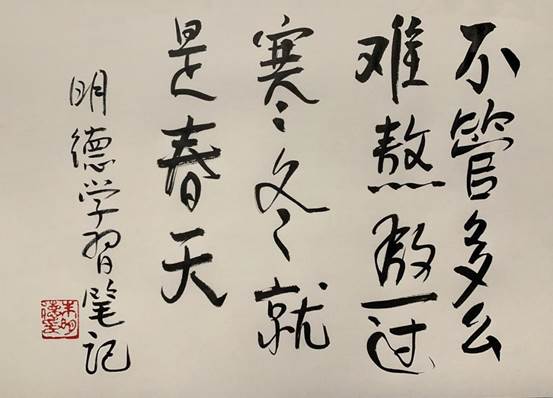 不管多么
难熬熬过
寒冬就
是春天
明德学習笔记